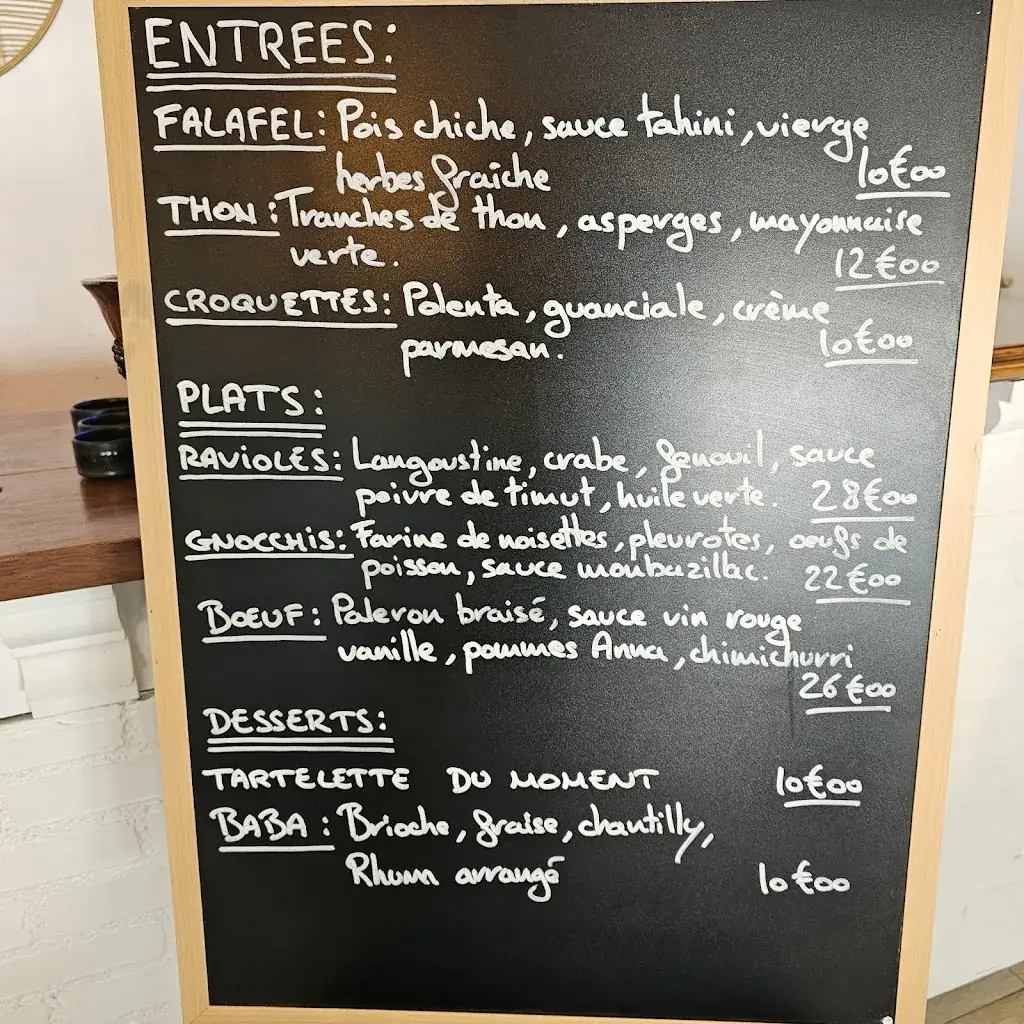 ENTREES:
FALAFEL: Pois chiche, sauce tahini, vierge
herbes fraiche 10€00
THON: Tranches de thon, asperges, mayonnaise
verte. 12€00
CROQUETTES: Polenta, guanciale, crème
parmesan. 10€00
PLATS:
RAVIOLES: Langoustine, crabe, fenouil, sauce
poivre de timut, huile verte. 28€00
GNOCCHIS: Farine de noisettes, pleurotes, oeufs de
poisson, sauce monbazillac. 22€00
BOEUF: Paleron braisé, sauce vin rouge
vanille, pommes Anna, chimichurri
26€00
DESSERTS:
TARTELETTE DU MOMENT 10€00
BABA: Brioche, fraise, chantilly,
Rhum arrangé 10€00